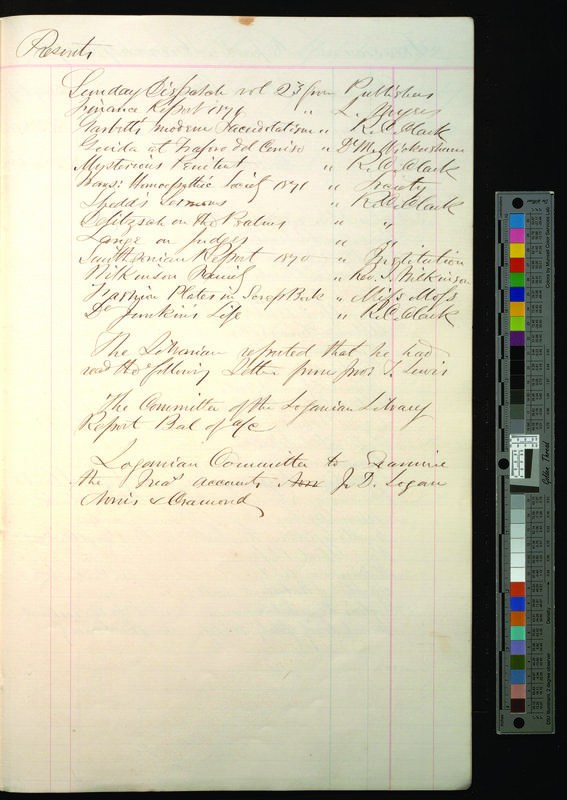 Presents
Sunday Dispatch vol 23 from Publishers
Finance Report 1870 " L. Myers
Garbett's modern Sacerdotalism " R.C. Clark
Guida at Traforo del Cenisio " Dr M. Wickersham
Mysterious Penitent " R.C. Clark
Trans: Homœopathic Society 1871 " Society
Shedd's Sermons " R.C. Clark
Delitzsch on the Psalms " "
Lange on Judges " "
Smithsonian Report 1870 " Institution
Wilkinson Family " Rev. J. Wilkinson
Fashion Plates in Scrap Book " Miss Moss
Dr Junkin's Life " R.C. Clark
The Librarian reported that he had
read the following Letter from J. Lewis
The Committee of the Loganian Library
Report Bal of a/c
Loganian Committee to Examine
the Treas accounts J. D. Logan
Norris & Cramond